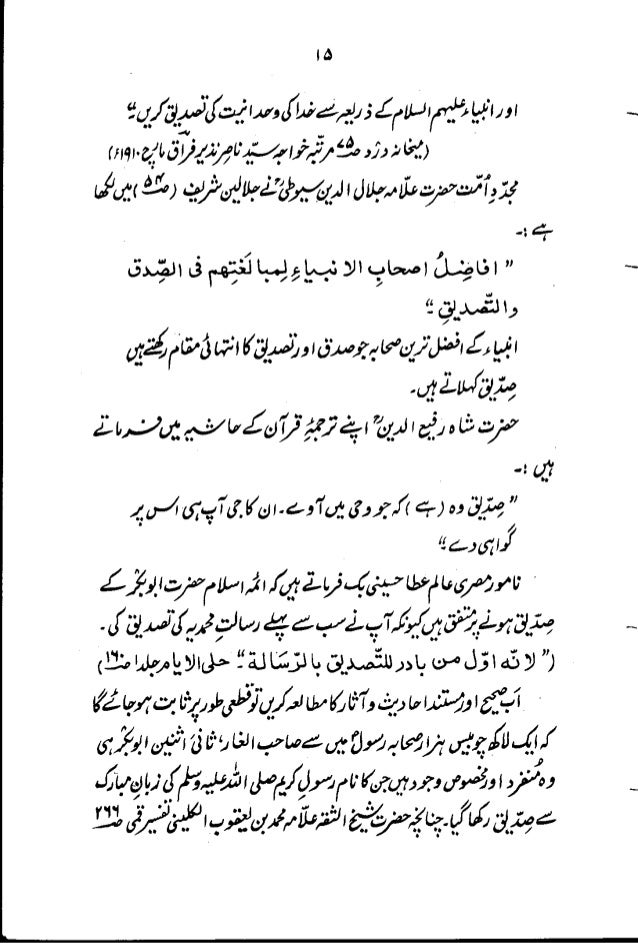 ۱۵
اور انبیاء علیہم السلام کے ذریعہ سے خدا کی وحدانیت کی تصدیق کریں۔"
(میخانہ درد ص۷۵ مرتبہ خواجہ سیّد ناصر نذیر فراق مارچ ۱۹۱۰ء)
مجدّدِ اُمّت حضرت علّامہ جلال الدین سیوطیؒ نے جلالین شریف (ص۵۴) میں لکھا
ہے :۔
" افاضِلُ اصحابِ الانبیاءِ لِمبالَغَتِهم فی الصِّدق
والتّصدیقِ۔"
انبیاء کے افضل ترین صحابہ جو صدق اور تصدیق کا انتہائی مقام رکھتے ہیں
صِدّیق کہلاتے ہیں۔
حضرت شاہ رفیع الدینؒ اپنے ترجمۂ قرآن کے حاشیہ میں فرماتے
ہیں :۔
" صِدّیق وہ (ہے) کہ جو وحی میں آوے۔ ان کا جی آپ ہی اس پر
گواہی دے۔"
نامور مصری عالم عطا حسینی بک فرماتے ہیں کہ ائمہ اسلام حضرت ابوبکرؓ کے
صِدّیق ہونے پر متفق ہیں کیونکہ آپ نے سب سے پہلے رسالتِ محمدیہ کی تصدیق کی۔
("لانه اوّل من بادر للتّصدیق بالرّسالة۔" حلی الایام جلد۱ ص۱۶)
اَب صحیح اور مستند احادیث و آثار کا مطالعہ کریں تو قطعی طور پر ثابت ہو جائے گا
کہ ایک لاکھ چوبیس ہزار صحابہ رسولؐ میں سے صاحب الغار، ثانیٔ اثنین ابوبکرؓ ہی
وہ مُنفرد اور مخصوص وجود ہیں جن کا نام رسولِ کریم صلی اللہ علیہ وسلم کی زبانِ مبارک
سے صِدّیق رکھا گیا۔ چنانچہ حضرت شیخ الثقہ علّامہ محمد بن یعقوب الکلینی تفسیر قمی ص۲۶۶